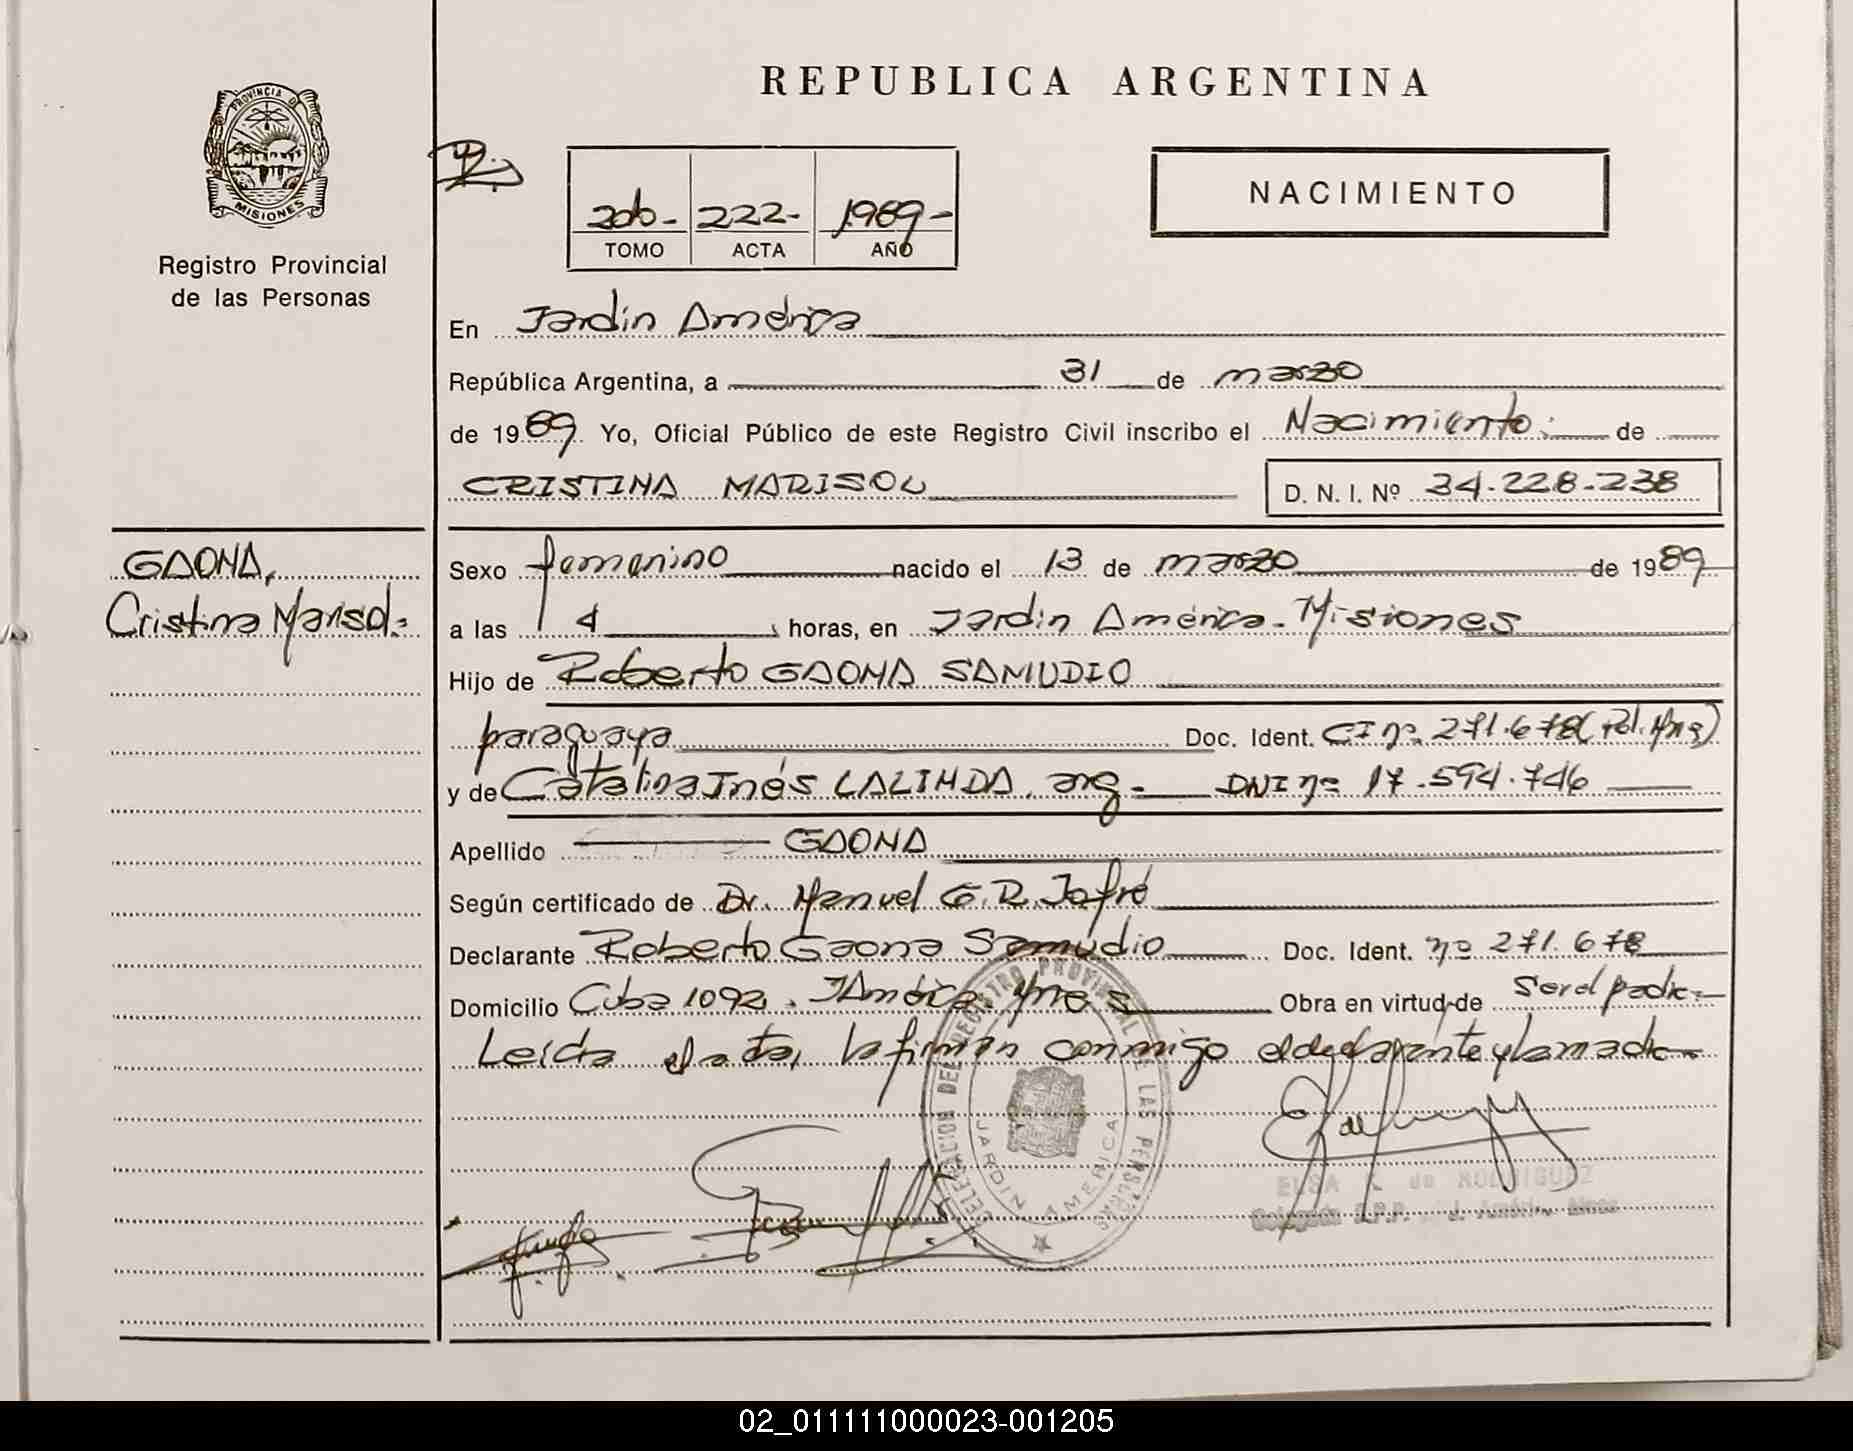 REPUBLICA ARGENTINA
PROVINCIA D
MISIONES
Registro Provincial
de las Personas
2do- 222- 1989-
TOMO ACTA AÑO
NACIMIENTO
En Jardín América
República Argentina, a 31 de marzo
de 1989 Yo, Oficial Público de este Registro Civil inscribo el Nacimiento: de
CRISTINA MARISOL D. N. I. Nº 34-228-238
GAONA,
Cristina Marisol.=
Sexo femenino nacido el 13 de marzo de 1989
a las 4 horas, en Jardín América. Misiones
Hijo de Roberto GAONA SAMUDIO
paraguaya Doc. Ident. CI nº 271.678 (Pol. Mnes)
y de Catalina Inés LALINDA, arg.- DNI nº 17.594.746
Apellido GAONA
Según certificado de Dr. Manuel G.R. Jofré
Declarante Roberto Gaona Samudio Doc. Ident. nº 271.678
Domicilio Cuba 1092. JAmérica. Mnes Obra en virtud de ser el padre-
Leída el acta, la firman conmigo el declarante y la madre-
DELEGACION DEL REGISTRO PROVINCIAL DE LAS PERSONAS
JARDIN AMERICA
ELSA de RODRIGUEZ
Delegada R.P.P. J. América Mnes
02_011111000023-001205